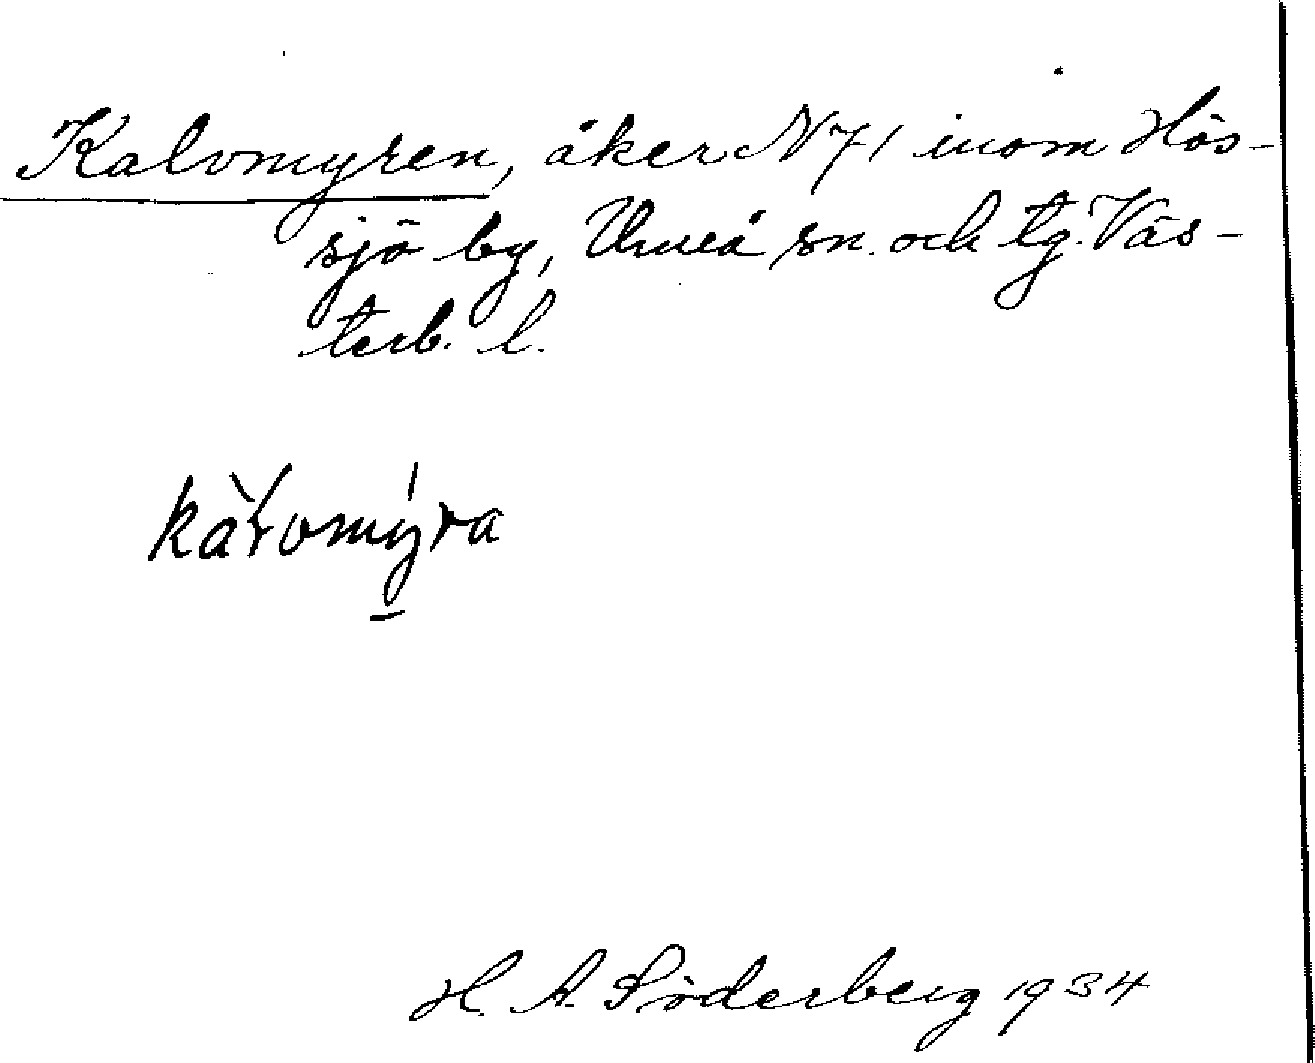 Kalvmyren, åker N71 inom Hös-
sjö by, Umeå sn. och tg. Väs-
terb. l.
kàɽvmýra
H. A. Söderberg 1934